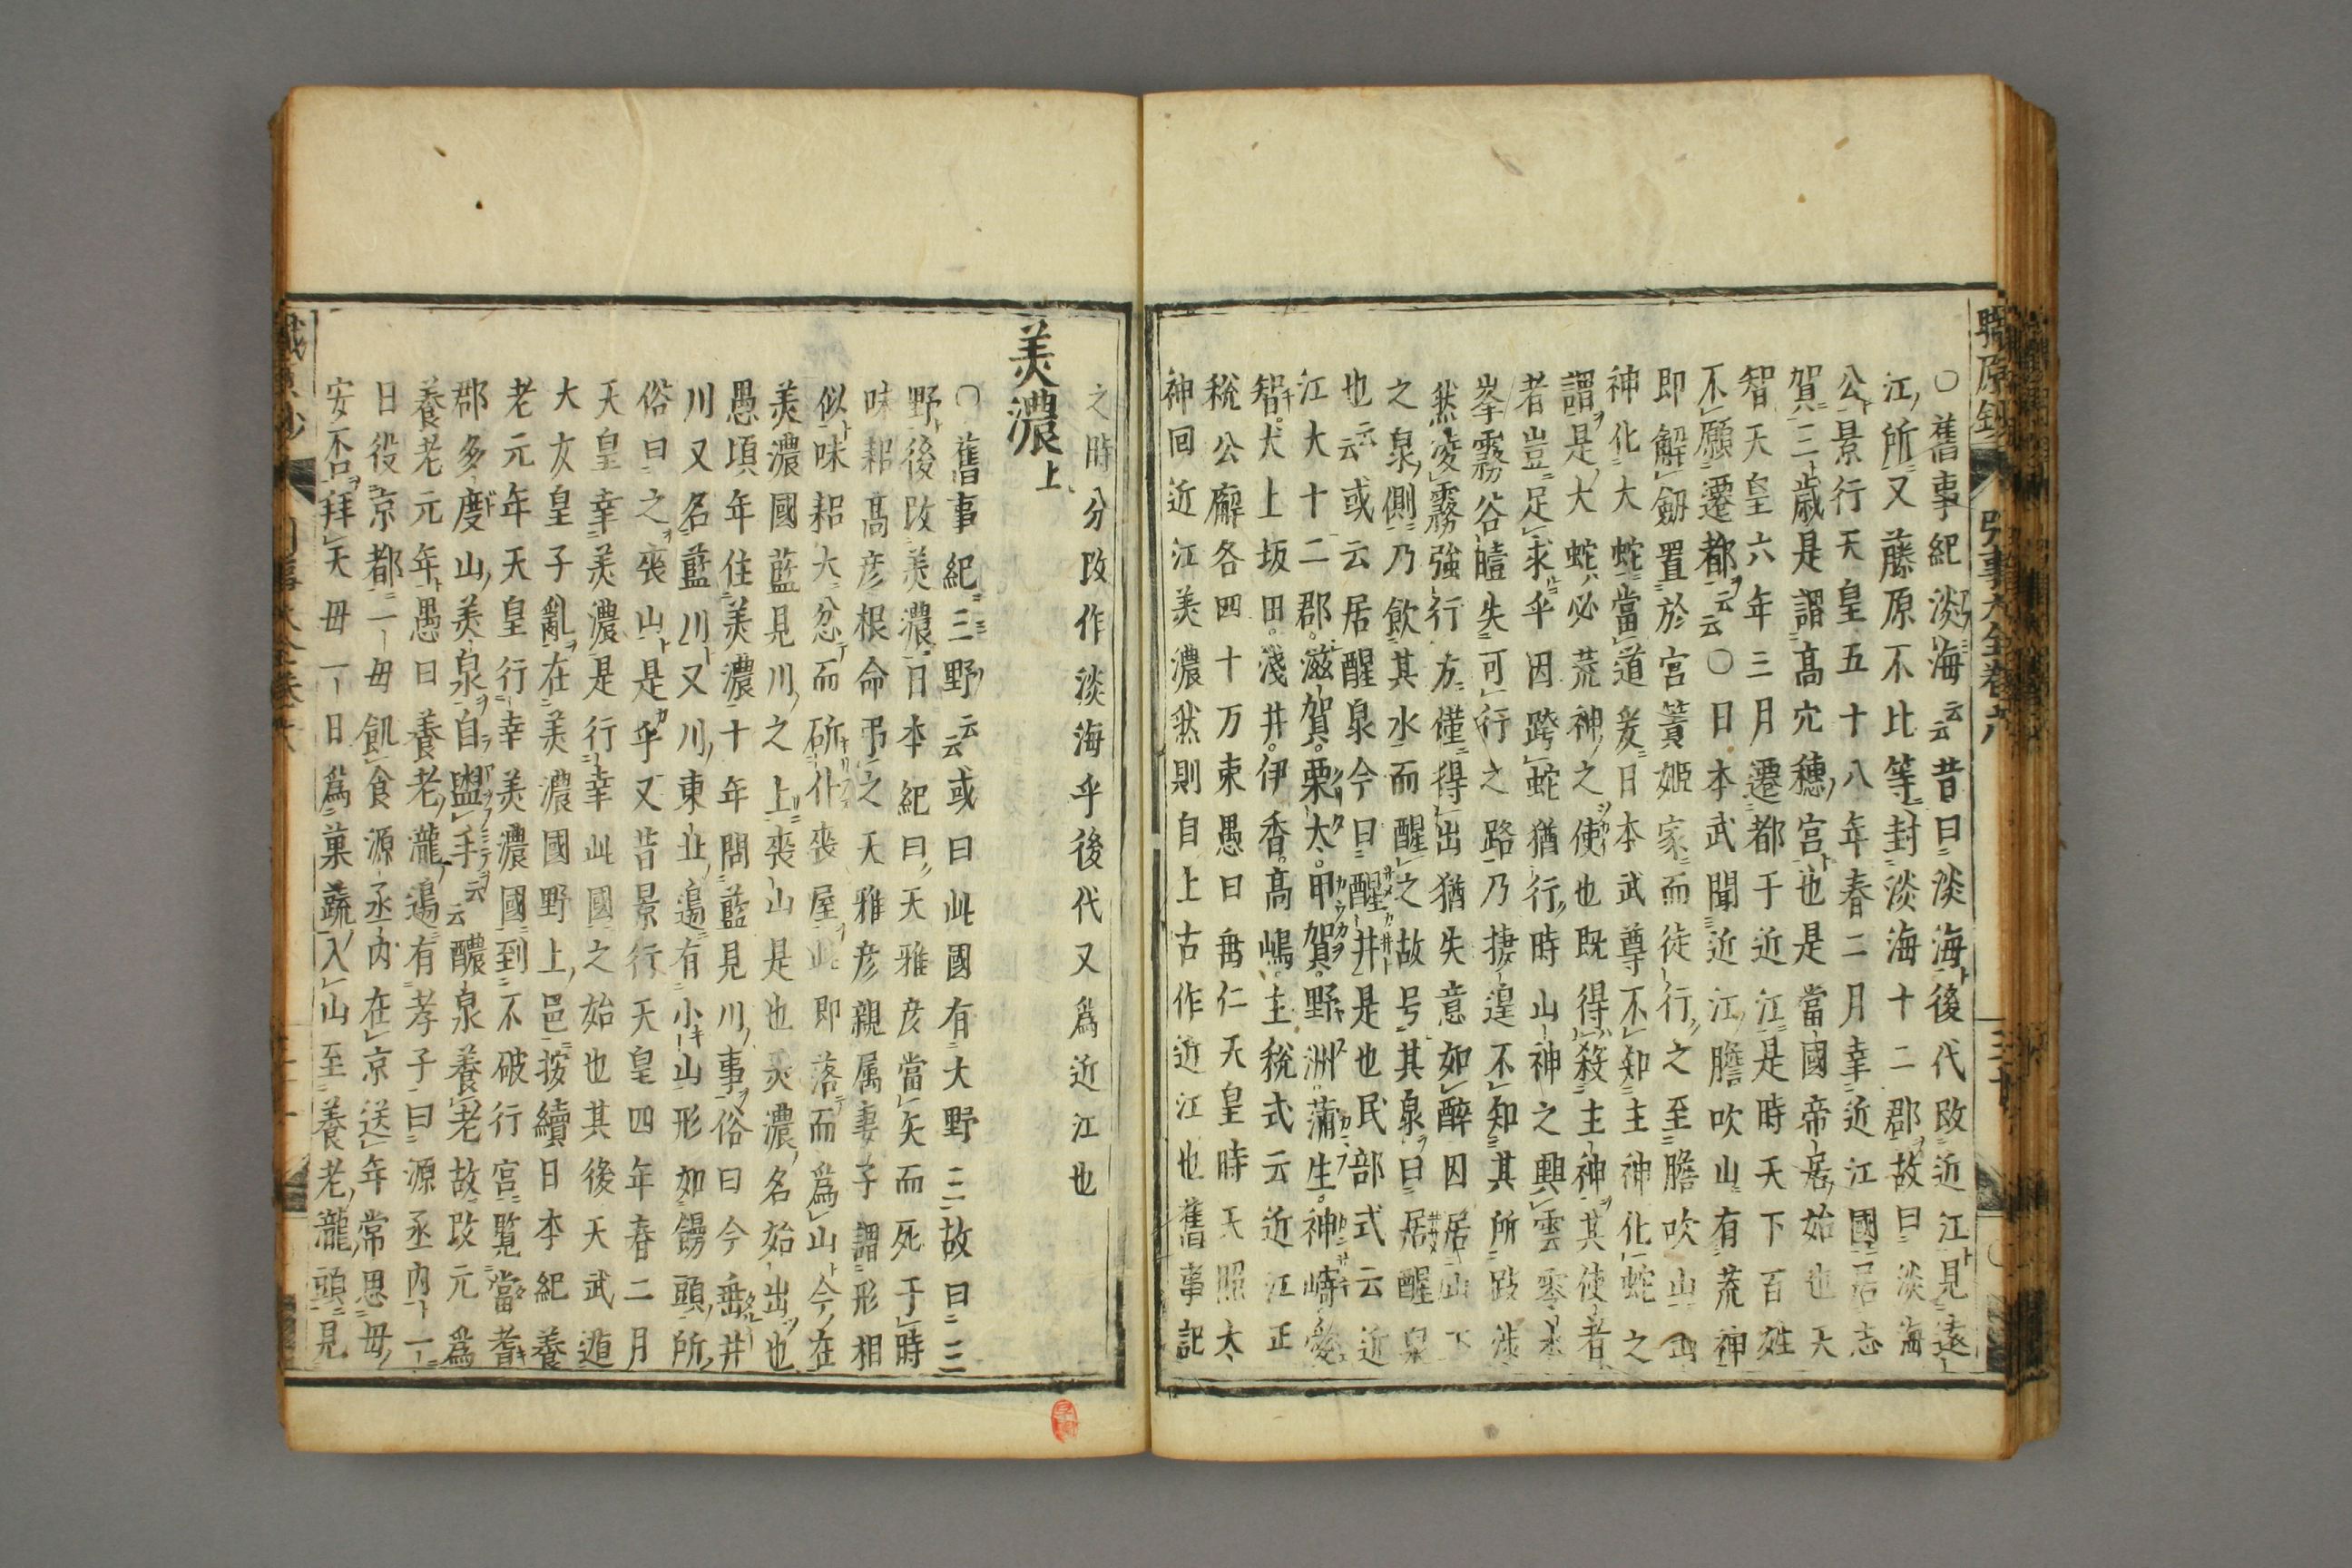 職原鈔 引事大全卷六
○舊事紀淡海云云昔曰淡海後代改近江見遠
江所又藤原不比等封淡海十二郡故曰淡海
公景行天皇五十八年春二月幸近江國居志
賀三歲是謂高穴穗宮也是當國帝居始也天
智天皇六年三月遷都于近江是時天下百姓
不願遷都云云○日本武聞近江膽吹山有荒神
即解劒置於宮簀姬家而徒行之至膽吹山山
神化大蛇當道爰日本武尊不知主神化蛇之
謂是大蛇必荒神之使也既得殺主神其使者
者豈足求乎因跨蛇猶行時山神之興雲零氷
峯霧谷曀失可行之路乃捿遑不知其所跋渉
然凌霧強行方僅得出猶失意如醉因居山下
之泉側乃飲其水而醒之故号其泉曰居醒泉
也云云或云居醒泉今曰醒井是也民部式云近
江大十二郡滋賀栗太甲賀野洲蒲生神崎愛
智犬上坂田淺井伊香高嶋主稅式云近江正
稅公廨各四十万束愚曰垂仁天皇時天照太
神回近江美濃然則自上古作近江也舊事記
之時分改作淡海乎後代又爲近江也
美濃上
○舊事紀三野云云或曰此國有大野三故曰三
野後改美濃日本紀曰天雅彦當矢而死于時
味耜高彦根命弔之天雅彦親属妻子謂形相
似味耜大忿而斫仆喪屋此即落而爲山今在
美濃國藍見川之上喪山是也美濃名始出也
愚頃年住美濃十年問藍見川事俗曰今垂井
川又名藍川又川東北邊有小山形如饅頭所
俗曰之喪山是乎又昔景行天皇四年春二月
天皇幸美濃是行幸此國之始也其後天武逎
大友皇子亂在美濃國野上邑按續日本紀養
老元年天皇行幸美濃國到不破行宮覧當耆
郡多度山美泉自盥手云云醴泉養老故改元爲
養老元年愚曰養老瀧邊有孝子曰源丞内一
日役京都一毋飢食源丞内在京送年常思毋
安否拜天毋一日爲菓蔬入山至養老瀧頭見